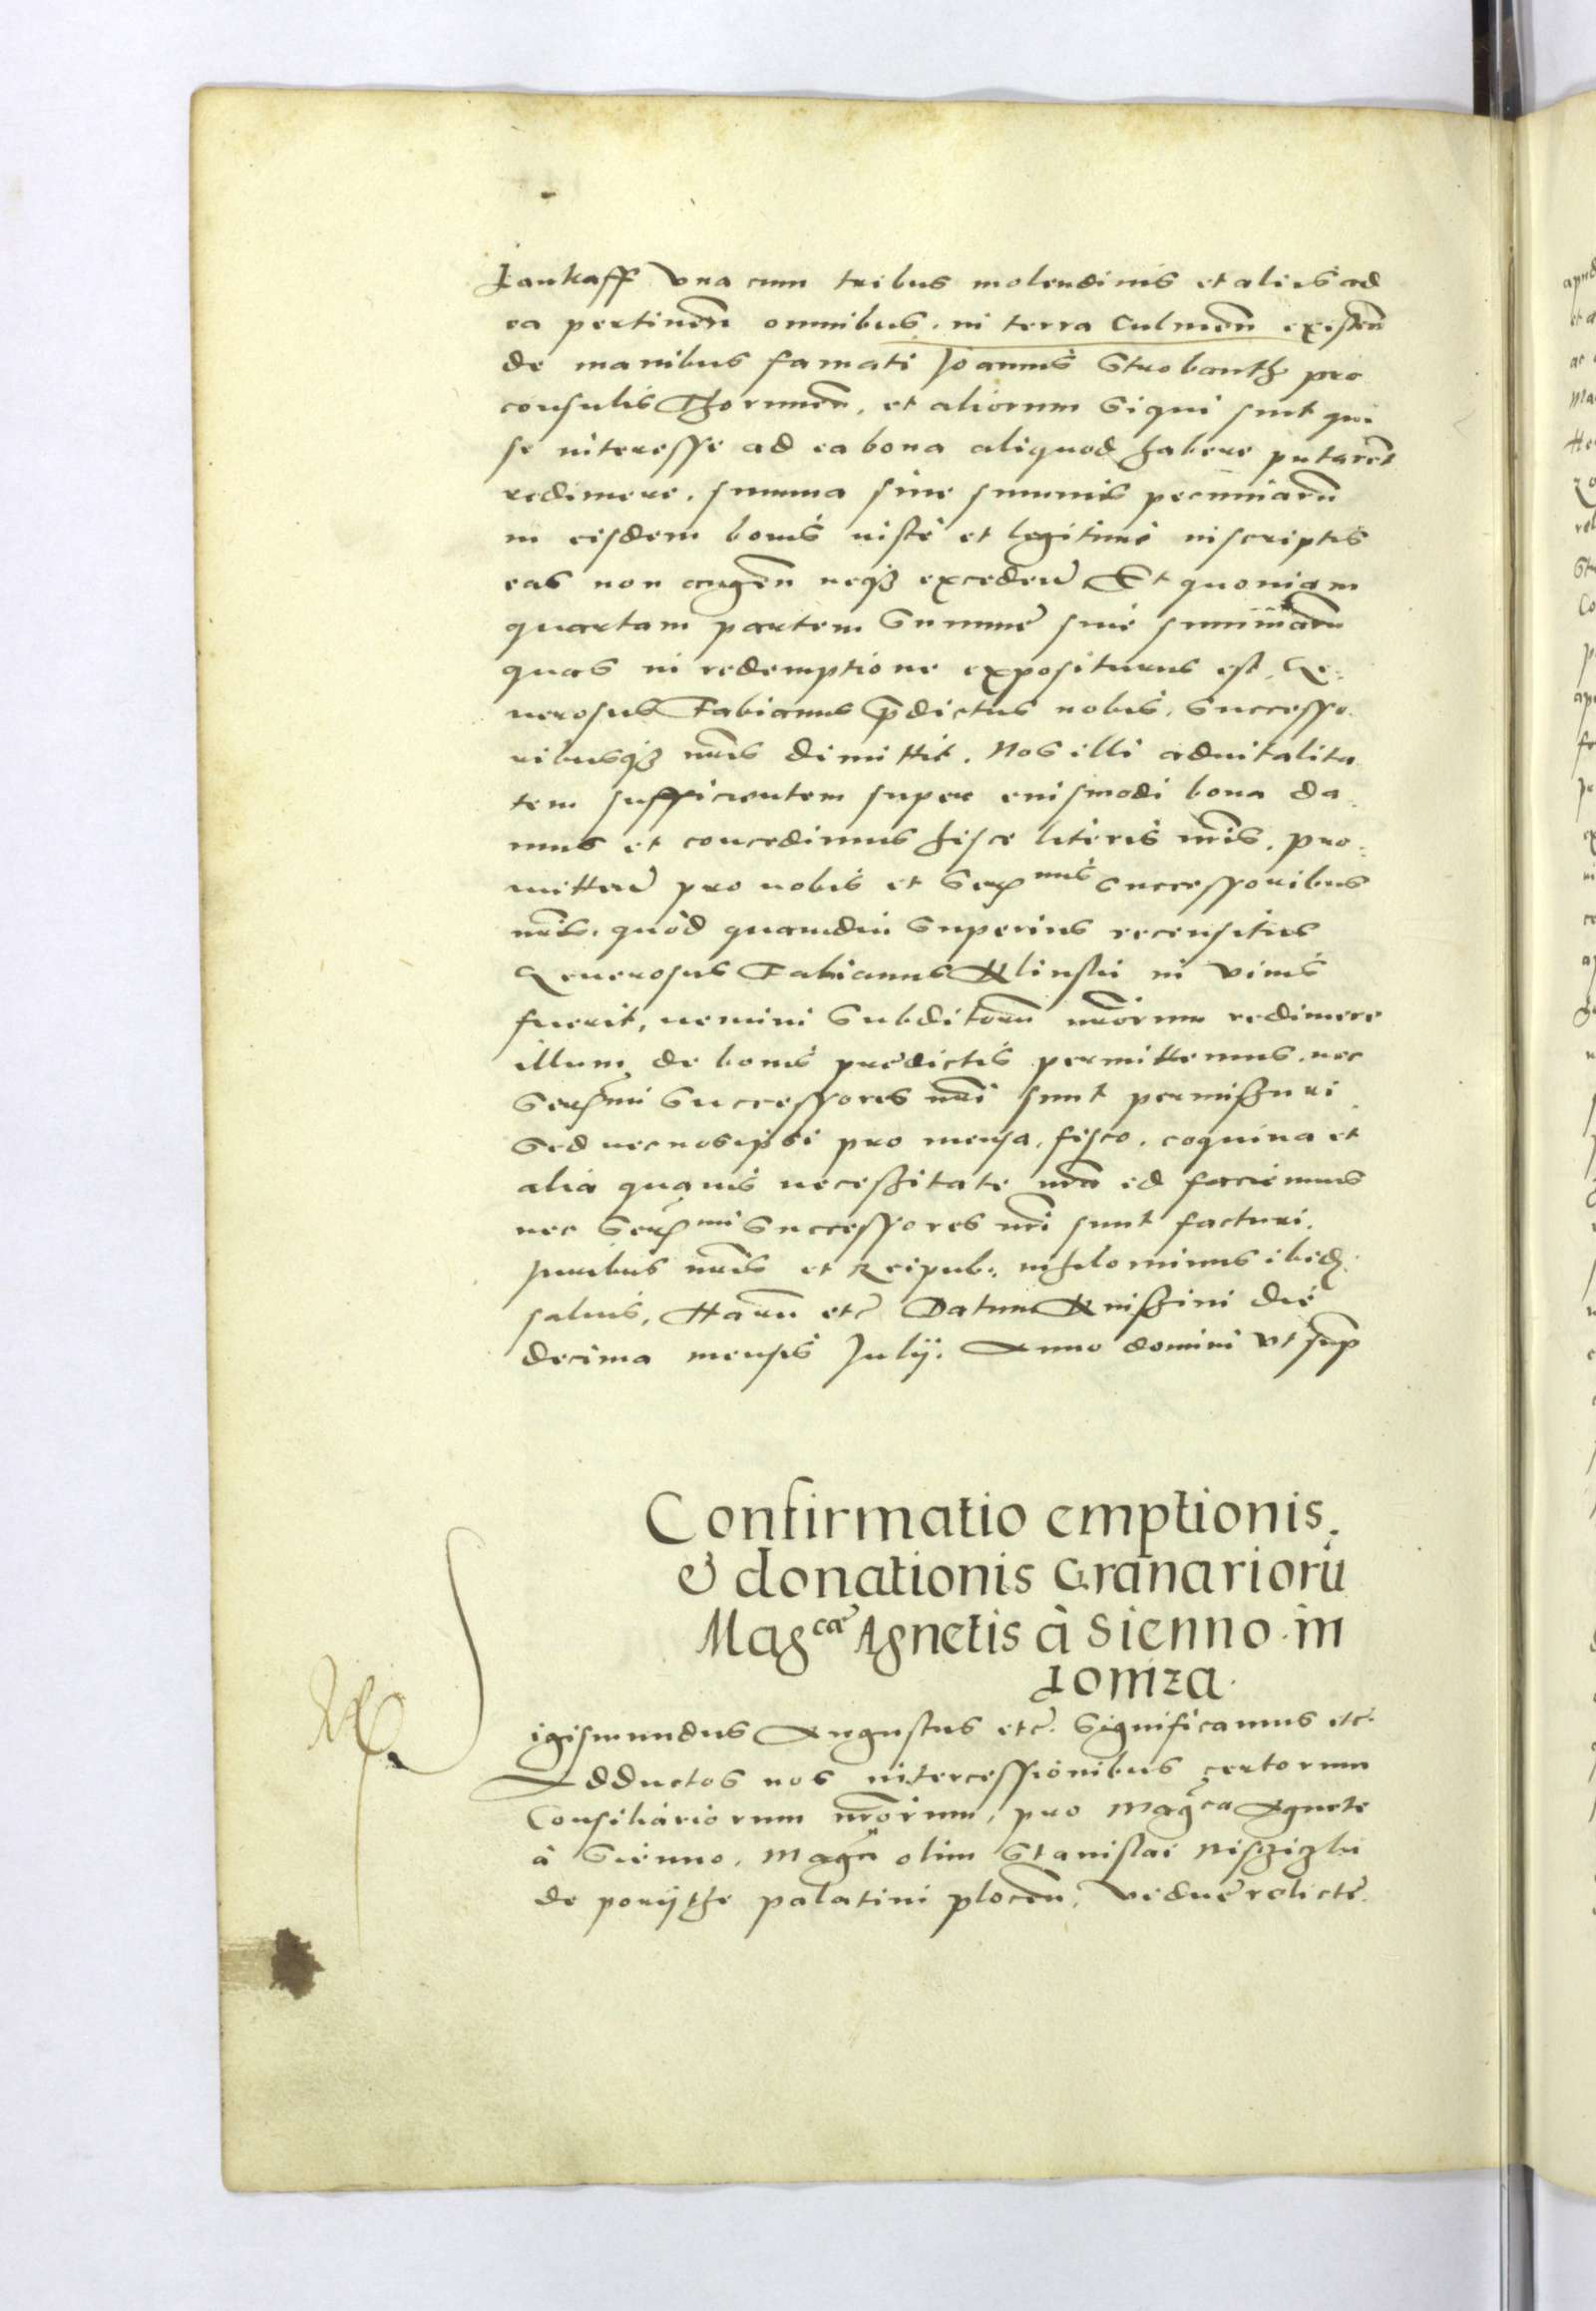 Lankaff vna cum tribus molendinis et aliis ad
ea pertineñ omnibus. in terra Culmeñ existeñ
de manibus famati Joannis Strobanth pro
consulis Thoruneñ, et aliorum siqui sint qui
se interesse ad ea bona aliquod habere putareñt
redimere. summa siue summis pecuniarũ
in eisdem bonis iuste et legitime inscriptis
eas non augeñ neqꝫ exceden̄ Et quoniam
quartam partem summe siue summarũ
quas in redemptione expositurus est, Ge:
nerosus Fabianus p̄dictus nobis, successo.
ribusqꝫ nr̃is dimittit. Nos illi aduitalita
tem sufficientem super eiusmodi bona da.
mus et concedimus hisce literis nr̃is, pro:
mitten̄ pro nobis et Ser^mis successoribus
nr̃is, quòd quamdiu superius recensitus
Generosus Fabianus Klinski in viuis
fuerit, nemini subditorũ nr̃orum redimere
illum de bonis predictis permittemus, nec
Ser^mi successores nr̃i sunt permissuri
Sed nec nos ipsi pro mensa, fisco, coquina et
alia quauis necessitate nr̃a id faciemus
nec Ser^mi successores nr̃i sunt facturi.
Juribus nr̃is et Reipub: nihilominus ibidẽ
saluis, Harũ etc̃ Datum Knissini die
decima mensis Julij. Anno domini vt sup̃
Confirmatio emptionis.
& donationis Granariorũ
Mag^cae Agnetis à Sienno in
Lomza.
Sigismundus Augustus etc̃. Significamus etc̃.
Adductos nos intercessionibus certorum
Consiliariorum nr̃orum, pro Mag^ca Agnete
à Sienno, Magci olim Stanislai
de porythe palatini ploceñ, vidue relicte.